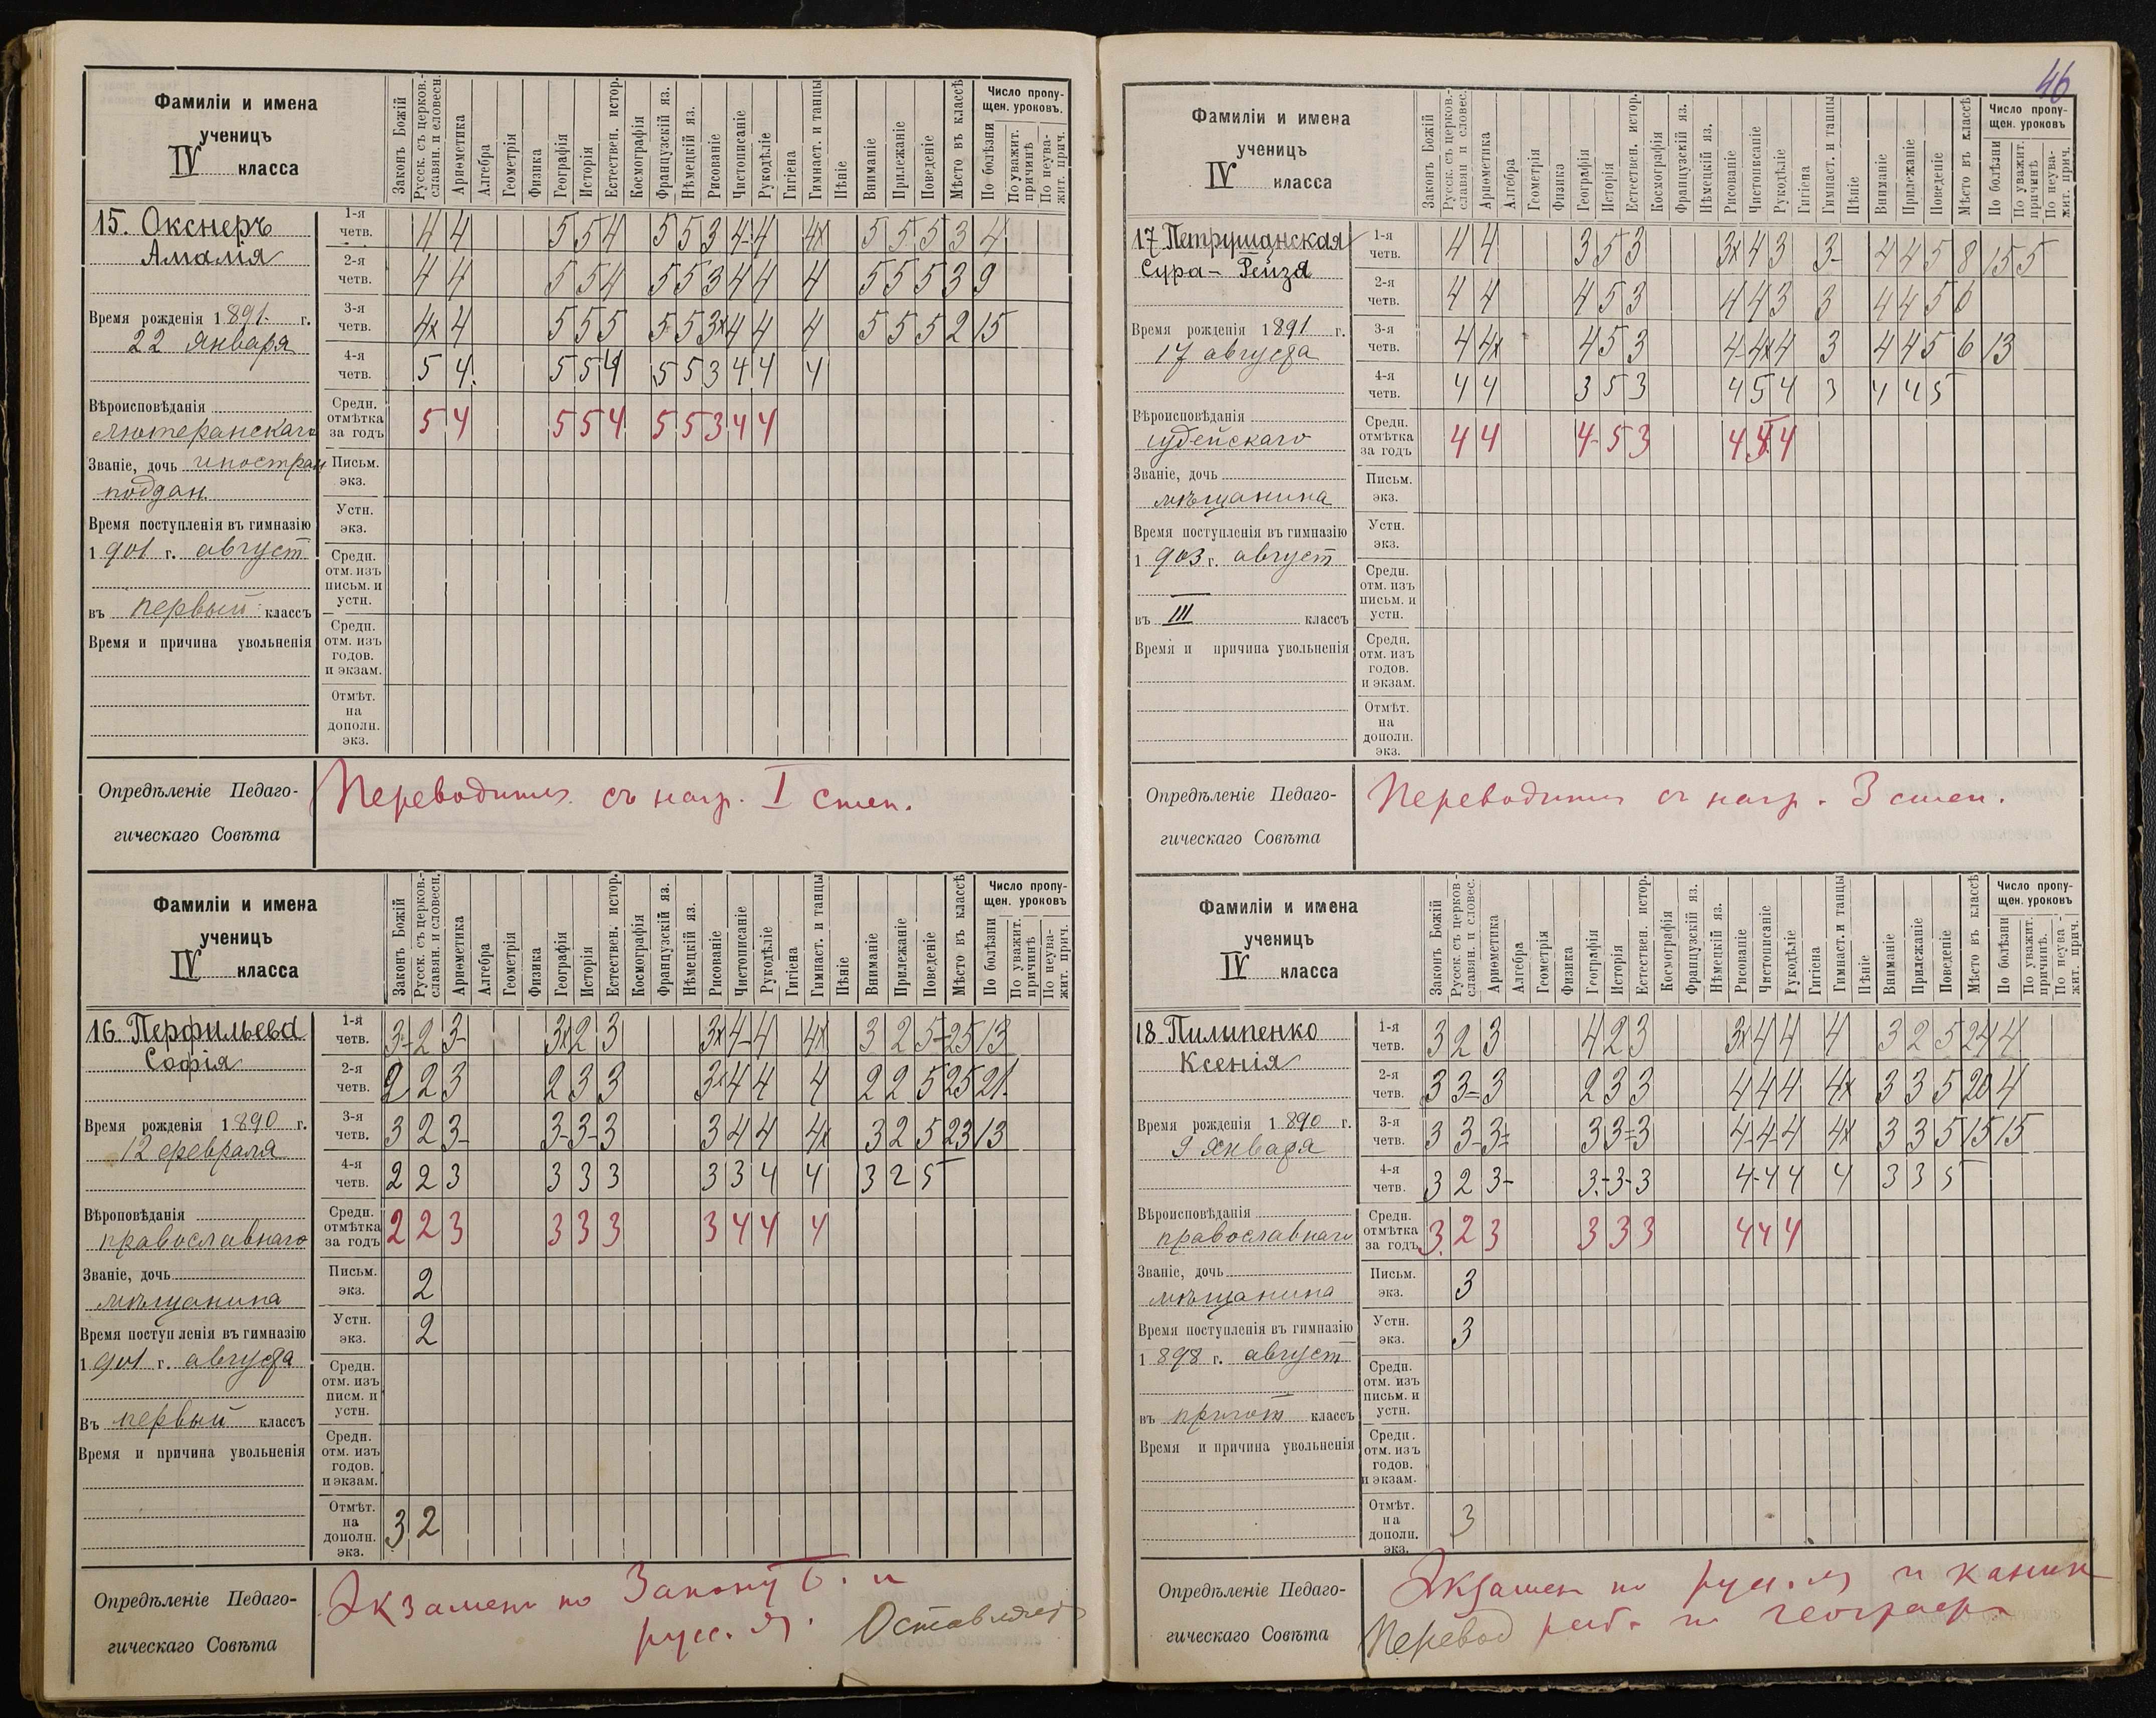 46
Фамиліи и имена
ученицъ
IV класса
Законъ Божій
Русск. съ церков.-
славян. и словесн.
Ариѳметика
Алгебра
Геометрія
Физика
Географія
Исторія
Естествен. истор.
Космографія
Французскій яз.
Нѣмецкій яз.
Рисованіе
Чистописаніе
Рукодѣліе
Гигіена
Гимнаст. и танцы
Пѣніе
Вниманіе
Прилежаніе
Поведеніе
Мѣсто въ классѣ
Число пропу-
щен. уроковъ.
По болѣзни
По уважит.
причинѣ
По неува-
жит. прич.
15. Окснеръ
Амалія
Время рожденія 1891 г.
22 января
Вѣроисповѣданія
лютеранскаго
Званіе, дочь иностран
поддан.
Время поступленія въ гимназію
1901 г. август
въ первый классъ
Время и причина увольненія
1-я четв. 4 4 5 5 4 5 5 3 4- 4 4x 5 5 5 3 4
2-я четв. 4 4 5 5 4 5 5 3 4 4 4 5 5 5 3 9
3-я четв. 4x 4 5 5 5 5 5 3x 4 4 4 5 5 5 2 15
4-я четв. 5 4. 5 5 4 5 5 3 4 4 4
Средн. отмѣтка за годъ 5 4 5 5 4 5 5 3 4 4
Письм. экз.
Устн. экз.
Средн. отм. изъ письм. и устн.
Средн. отм. изъ годов. и экзам.
Отмѣт. на дополн. экз.
Опредѣленіе Педаго-
гическаго Совѣта
Переводится съ нагр. I степ.
Фамиліи и имена
ученицъ
IV класса
Законъ Божій
Русск. съ церков.-
славян. и словесн.
Ариѳметика
Алгебра
Геометрія
Физика
Географія
Исторія
Естествен. истор.
Космографія
Французскій яз.
Нѣмецкій яз.
Рисованіе
Чистописаніе
Рукодѣліе
Гигіена
Гимнаст. и танцы
Пѣніе
Вниманіе
Прилежаніе
Поведеніе
Мѣсто въ классѣ
Число пропу-
щен. уроковъ
По болѣзни
По уважит.
причинѣ
По неува-
жит. прич.
16. Перфильева
Софія
Время рожденія 1890 г.
12 февраля
Вѣроповѣданія
православнаго
Званіе, дочь
мѣщанина
Время поступленія въ гимназію
1901 г. августа
Въ первый классъ
Время и причина увольненія
1-я четв. 3- 2 3- 3x 2 3 3x 4- 4 4x 3 2 5- 25 13
2-я четв. 2 2 3 2 3 3 3x 4 4 4 2 2 5 25 21.
3-я четв. 3 2 3- 3- 3- 3 3 4 4 4x 3 2 5 23 13
4-я четв. 2 2 3 3 3 3 3 3 4 4 3 2 5
Средн. отмѣтка за годъ 2 2 3 3 3 3 3 4 4 4
Письм. экз. 2
Устн. экз. 2
Средн. отм. изъ писм. и устн.
Средн. отм. изъ годов. и экзам.
Отмѣт. на дополн. экз. 3 2
Опредѣленіе Педаго-
гическаго Совѣта
Экзамен по Закону Б. и
русс. яз.
Оставляется
Фамиліи и имена
ученицъ
IV класса
Законъ Божій
Русск. съ церков.-
славян и словес.
Ариѳметика
Алгебра
Геометрія
Физика
Географія
Исторія
Естествен. истор.
Космографія
Французскій яз.
Нѣмецкій яз.
Рисованіе
Чистописаніе
Рукодѣліе
Гигіена
Гимнаст. и танцы
Пѣніе
Вниманіе
Прилежаніе
Поведеніе
Мѣсто въ классѣ
Число пропу-
щен. уроковъ
По болѣзни
По уважит.
причинѣ
По неува-
жит. прич.
17 Петрушанская
Сура-Рейзя
Время рожденія 1891 г.
17 августа
Вѣроисповѣданія
іудейскаго
Званіе, дочь
мѣщанина
Время поступленія въ гимназію
1903 г. август
въ III классъ
Время и причина увольненія
1-я четв. 4 4 3 5 3 3x 4 3 3- 4 4 5 8 15 5
2-я четв. 4 4 4 5 3 4 4 3 3 4 4 5 6
3-я четв. 4 4x 4 5 3 4- 4x 4 3 4 4 5 6 13
4-я четв. 4 4 3 5 3 4 5 4 3 4 4 5
Средн. отмѣтка за годъ 4 4 4- 5 3 4 4
Письм. экз.
Устн. экз.
Средн. отм. изъ письм. и устн.
Средн. отм. изъ годов. и экзам.
Отмѣт. на дополн. экз.
Опредѣленіе Педаго-
гическаго Совѣта
Переводится съ нагр. 3 степ.
Фамиліи и имена
ученицъ
IV класса
Законъ Божій
Русск. съ церков-
славян. и словес.
Ариѳметика
Алгебра
Геометрія
Физика
Географія
Исторія
Естествен. истор.
Космографія
Французскій яз.
Нѣмецкій яз.
Рисованіе
Чистописаніе
Рукодѣліе
Гигіена
Гимнаст. и танцы
Пѣніе
Вниманіе
Прилежаніе
Поведеніе
Мѣсто въ классѣ
Число пропу-
щен. уроковъ
По болѣзни
По уважит.
причинѣ.
По неува-
жит. прич.
18 Пилипенко
Ксенія
Время рожденія 1890 г.
9 января
Вѣроисповѣданія
православнаго
Званіе, дочь
мѣщанина
Время поступленія въ гимназію
1898 г. август
въ пригот классъ
Время и причина увольненія
1-я четв. 3 2 3 4 2 3 3x 4 4 4 3 2 5 24 4
2-я четв. 3 3= 3 2 3 3 4 4 4 4x 3 3 5 20 4
3-я четв. 3 3- 3= 3 3= 3 4- 4- 4 4x 3 3 5 15 15
4-я четв. 3 2 3- 3- 3- 3 4- 4 4 4 3 3 5
Средн. отмѣтка за годъ 3. 2 3 3 3 3 4 4 4
Письм. экз. 3
Устн. экз. 3
Средн. отм. изъ письм. и устн.
Средн. отм. изъ годов. и экзам.
Отмѣт. на дополн. экз. 3
Опредѣленіе Педаго-
гическаго Совѣта
Экзамен по русс. яз и каник
раб. по географ.
Перевод